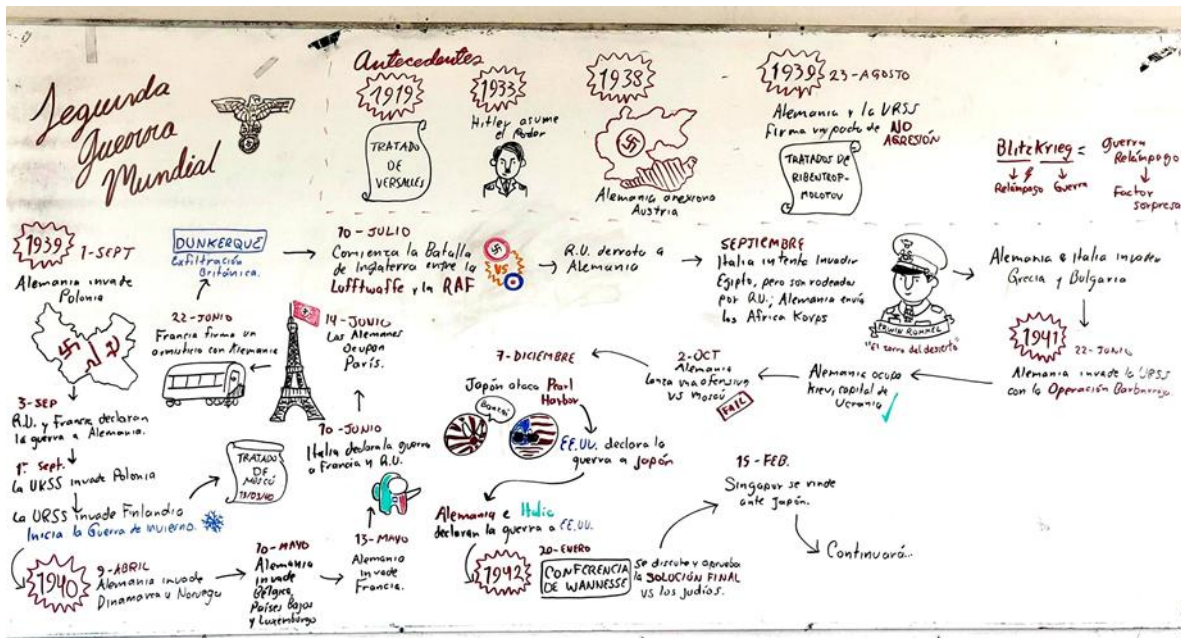 Segunda
Guerra
Mundial
Antecedentes
1919
TRATADO
DE
VERSALLES
1933
Hitler asume
el Poder
1938
Alemania anexiona
Austria
1939
23-AGOSTO
Alemania y la URSS
Firma un pacto de NO
AGRESIÓN
TRATADOS DE
RIBENTROP-
MOLOTOV
Blitzkrieg = guerra
Relámpago
Relámpago Guerra
Factor
sorpresa
1939
1-SEPT
Alemania invade
Polonia
3-SEP
R.U. y Francia declaran
la guerra a Alemania.
Sept.
la URSS invade Polonia
La URSS invade Finlandia
Inicia la Guerra de Invierno.
TRATADO
DE
MOSCÚ
13/03/40
1940
9-ABRIL
Alemania invade
Dinamarca y Noruega
10-MAYO
Alemania
invade
Bélgica,
Países Bajos
y Luxemburgo
13-MAYO
Alemania
invade
Francia.
10-JUNIO
Italia declara la guerra
a Francia y R.U.
14-JUNIO
Las Alemanes
Ocupan
París.
22-JUNIO
Francia firma un
armisticio con Alemania
DUNKERQUE
Exfiltración
Británica.
10-JULIO
Comienza la Batalla
de Inglaterra entre la
Lufftwaffe y la RAF
VS
R.U. derrota a
Alemania
SEPTIEMBRE
Italia intenta invadir
Egipto, pero son rodeadas
por R.U.; Alemania envía
los Africa Korps
ERWIN ROMMEL
"El zorro del desierto"
Alemania e Italia invaden
Grecia y Bulgaria
1941
22-JUNIO
Alemania invade la URSS
con la Operación Barbarroja.
Alemania ocupa
kiev, capital de
Ucrania
2-OCT
Alemania
lanza una ofensiva
vs Moscú
FAIL
7-DICIEMBRE
Japón ataca Pearl
Harbor
Banzai
EE.UU. declara la
guerra a Japón
Alemania e Italia
declaran la guerra a EE.UU.
1942
20-ENERO
CONFERENCIA
DE WANNESSE
Se discute y aprueba
la SOLUCIÓN FINAL
vs los judíos.
15-FEB.
Singapur se rinde
ante Japón.
Continuará...